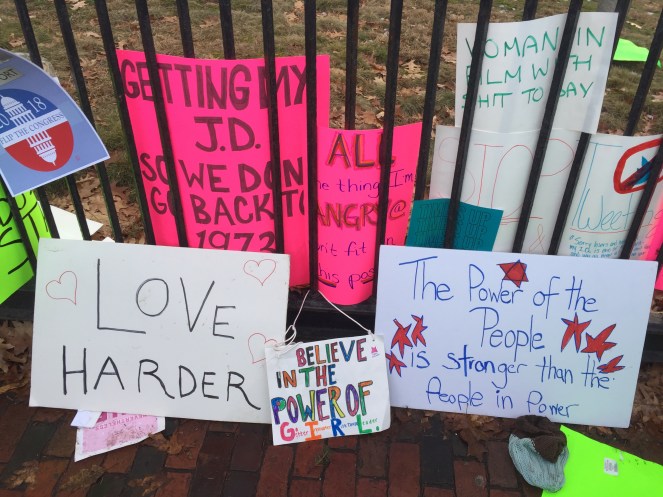 2018
FLIP THE CONGRESS
GETTING MY
J.D.
SO WE DON
GO BACK TO
1973
ALL
the things I'm
ANGRY @
fit
this pos
WOMAN IN
FILM WITH
SHIT TO SAY
STOP
Tweeting
LOVE
HARDER
BELIEVE
IN THE
POWER OF
G.I.R.L.
The Power of the
People
is stronger than the
People in Power